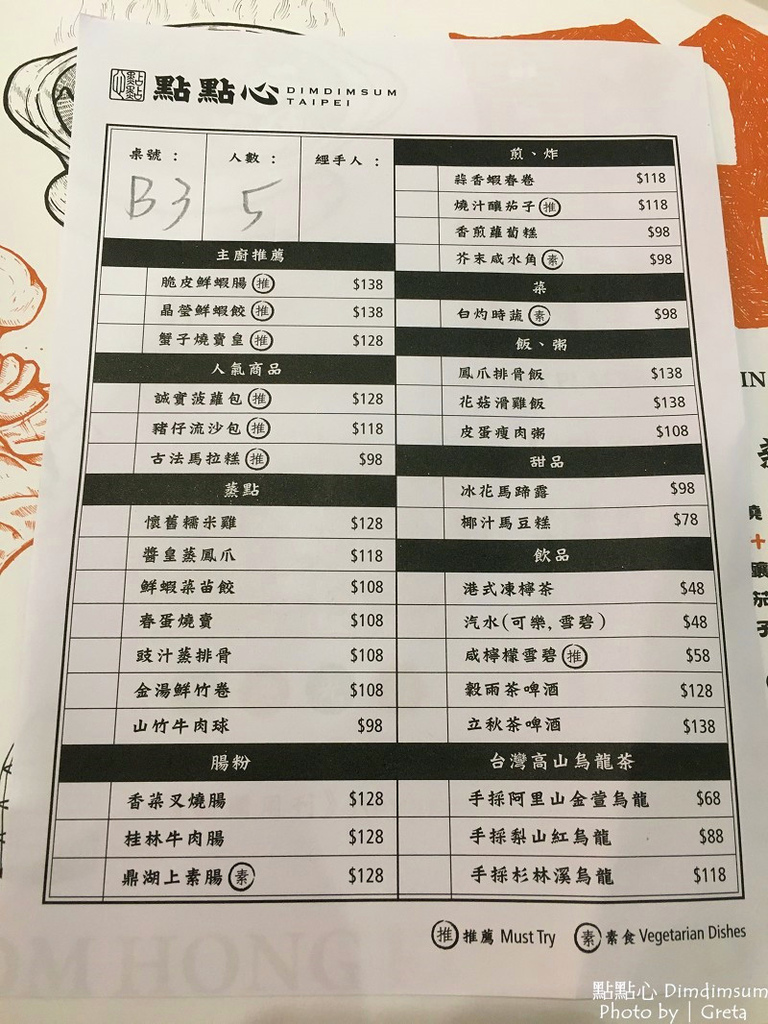 點點心 DIMDIMSUM TAIPEI
桌號： 人數： 經手人：
B3 5
主廚推薦
脆皮鮮蝦腸 推 $138
晶瑩鮮蝦餃 推 $138
蟹子燒賣皇 推 $128
人氣商品
誠實菠蘿包 推 $128
豬仔流沙包 推 $118
古法馬拉糕 推 $98
蒸點
懷舊糯米雞 $128
醬皇蒸鳳爪 $118
鮮蝦菜苗餃 $108
春蛋燒賣 $108
豉汁蒸排骨 $108
金湯鮮竹卷 $108
山竹牛肉球 $98
腸粉
香菜叉燒腸 $128
桂林牛肉腸 $128
鼎湖上素腸 素 $128
煎、炸
蒜香蝦春卷 $118
燒汁釀茄子 推 $118
香煎蘿蔔糕 $98
芥末咸水角 素 $98
菜
白灼時蔬 素 $98
飯、粥
鳳爪排骨飯 $138
花菇滑雞飯 $138
皮蛋瘦肉粥 $108
甜品
冰花馬蹄露 $98
椰汁馬豆糕 $78
飲品
港式凍檸茶 $48
汽水(可樂, 雪碧) $48
咸檸檬雪碧 推 $58
穀雨茶啤酒 $128
立秋茶啤酒 $138
台灣高山烏龍茶
手採阿里山金萱烏龍 $68
手採梨山紅烏龍 $88
手採杉林溪烏龍 $118
推 推薦 Must Try 素 素食 Vegetarian Dishes
IN
燒
+
釀
茄
子
OM HONG
點點心 Dimdimsum
Photo by | Greta